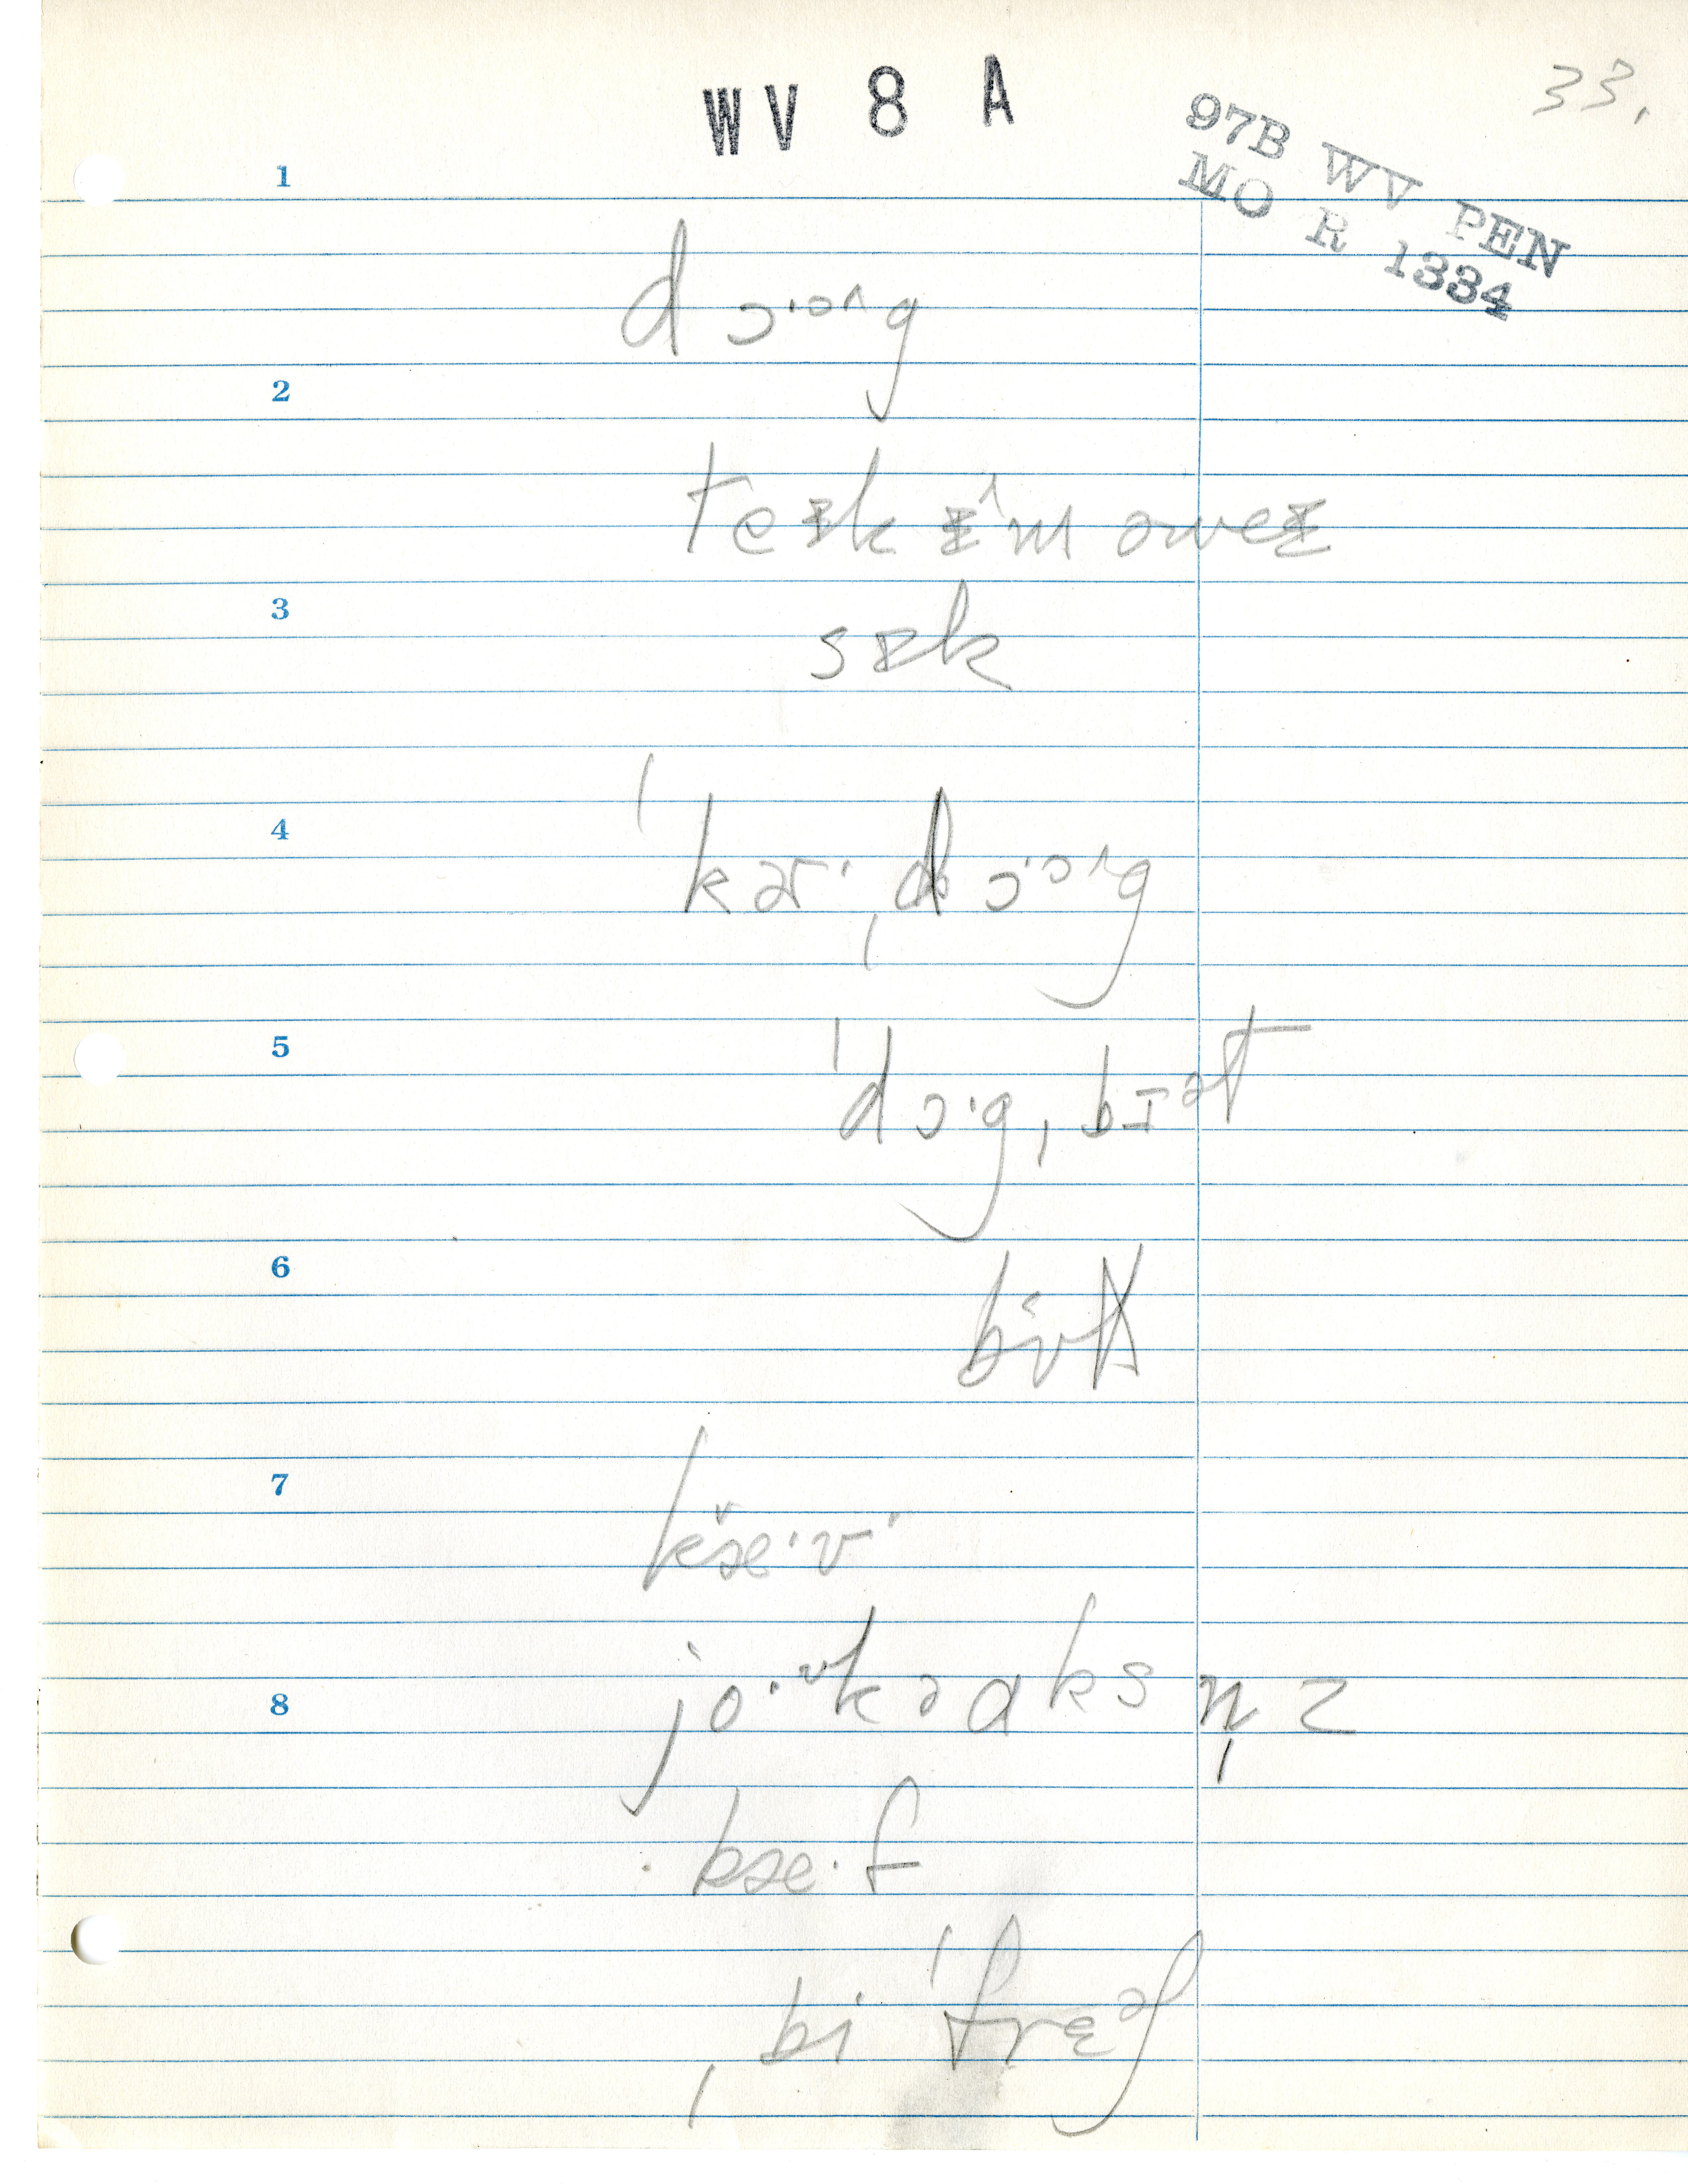 WV 8 A
33.
97B WV PEN
MO R 1334
1
dɔ·ɔ^g
2
teɪk ɪ^m əweɪ
3
sɪk
4
ˈkɜr·ˌdɔ·ɔ^g
5
ˈdɔ·gˌbɪᵊt
6
7
kæ·v
8
jo·ᶷk ə aksn̩z
kæ·f
ˌbi ˈfrɛᵊʃ